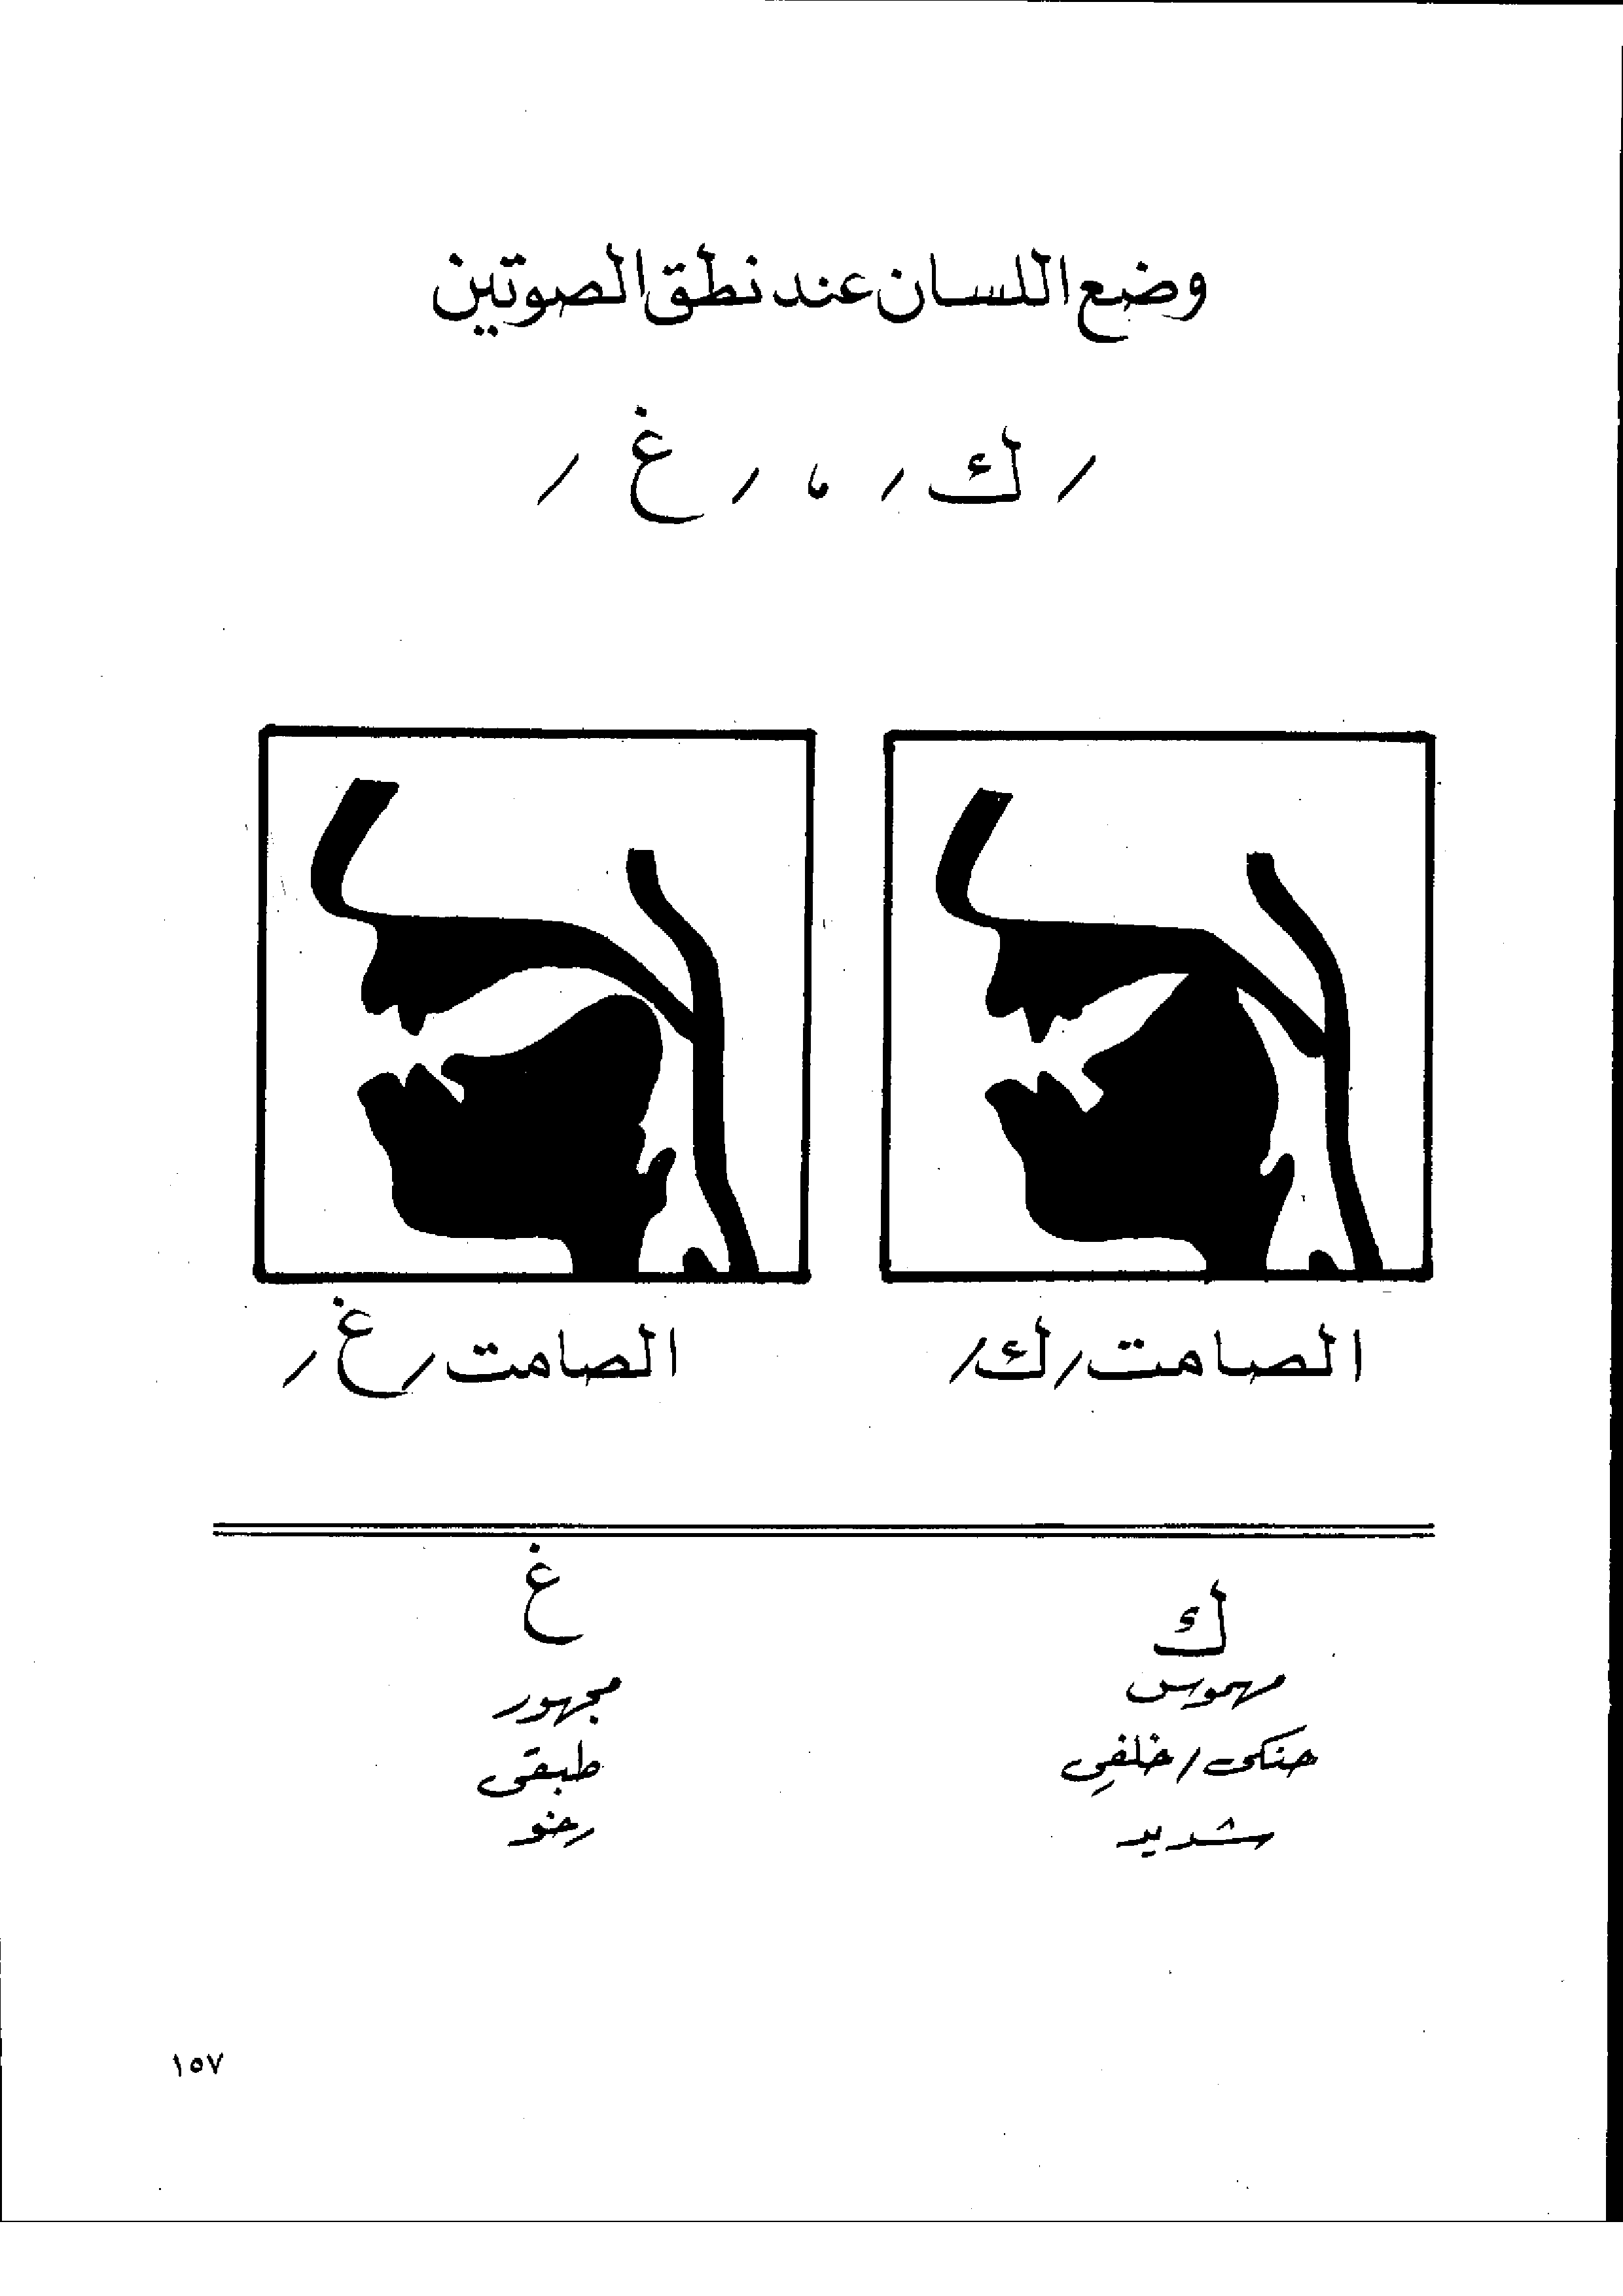 وضع اللسان عند نطق الصوتين
/ ك / ، / غ /
الصامت / ك /
الصامت / غ /
ك
مهموس
حنكى / خلفي
شديد
غ
مجهور
طبقى
رخو
١٥٧